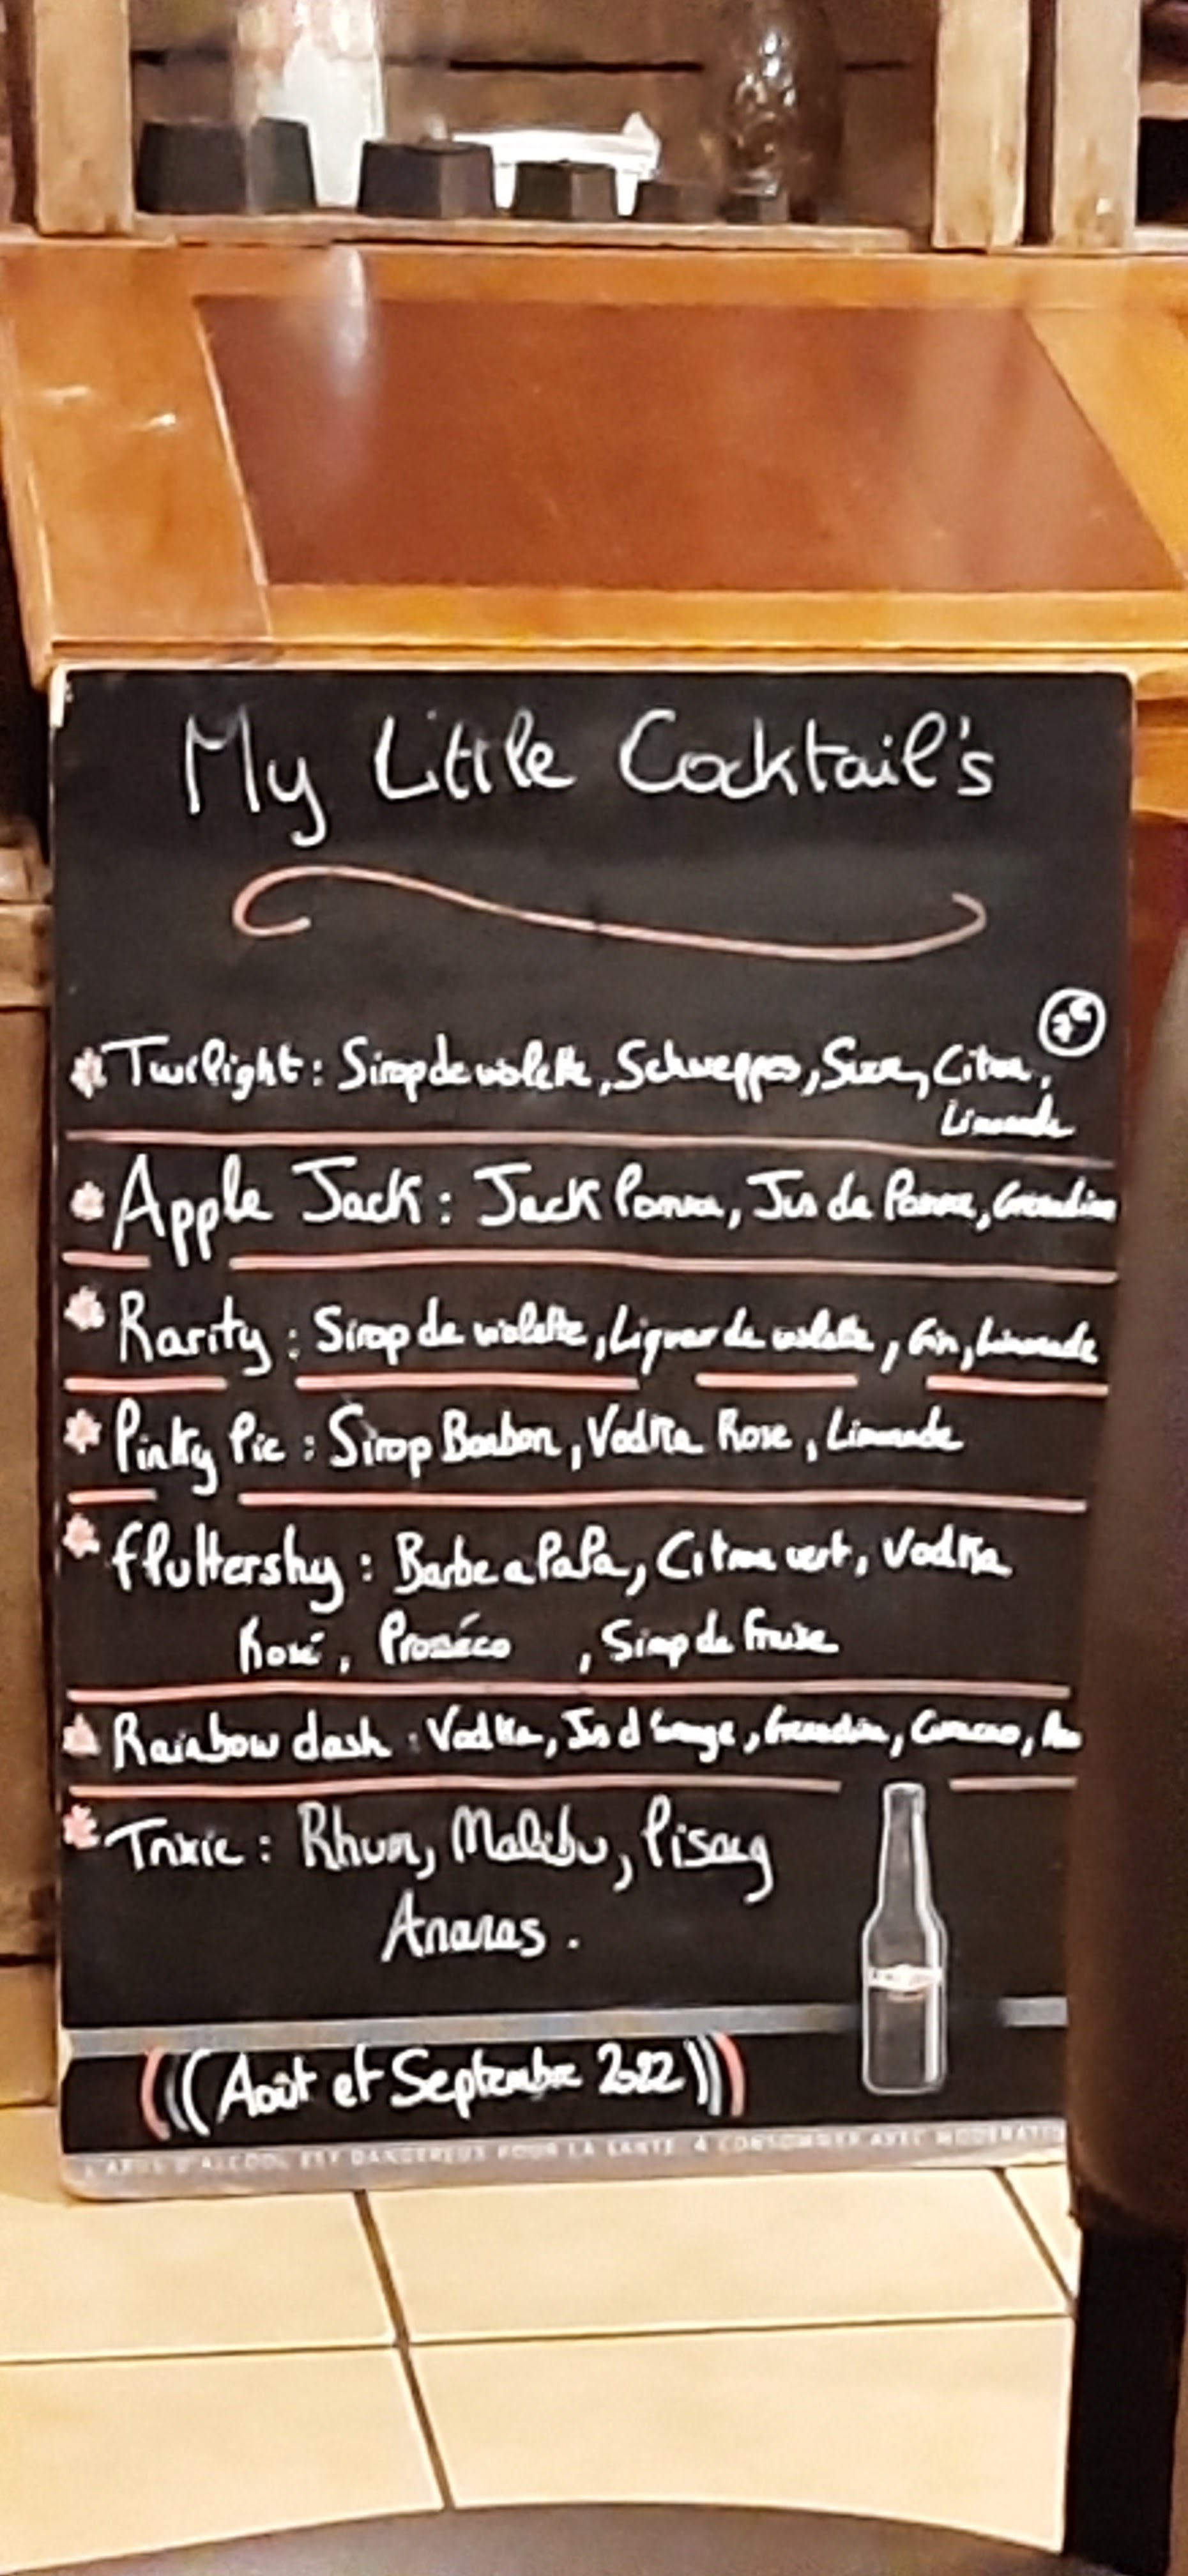 My Little Cocktail's
7€
Twilight : Sirop de violette, Schweppes, Suze, Citron,
Limonade
Apple Jack : Jack Pomme, Jus de Pomme, Grenadine
Rarity : Sirop de violette, Liqueur de violette, Gin, Limonade
Pinky Pie : Sirop Bonbon, Vodka Rose, Limonade
Fluttershy : Barbe a PaPa, Citron vert, Vodka
Rosé, Proséco , Sirop de Fraise
Rainbow dash : Vodka, Jus d'orange, Grenadine, Curacao,
Trixie : Rhum, Malibu, Pisang
Ananas .
(Août et Septembre 2022)
L'ABUS D'ALCOOL EST DANGEREUX POUR LA SANTÉ. A CONSOMMER AVEC MODÉRATION